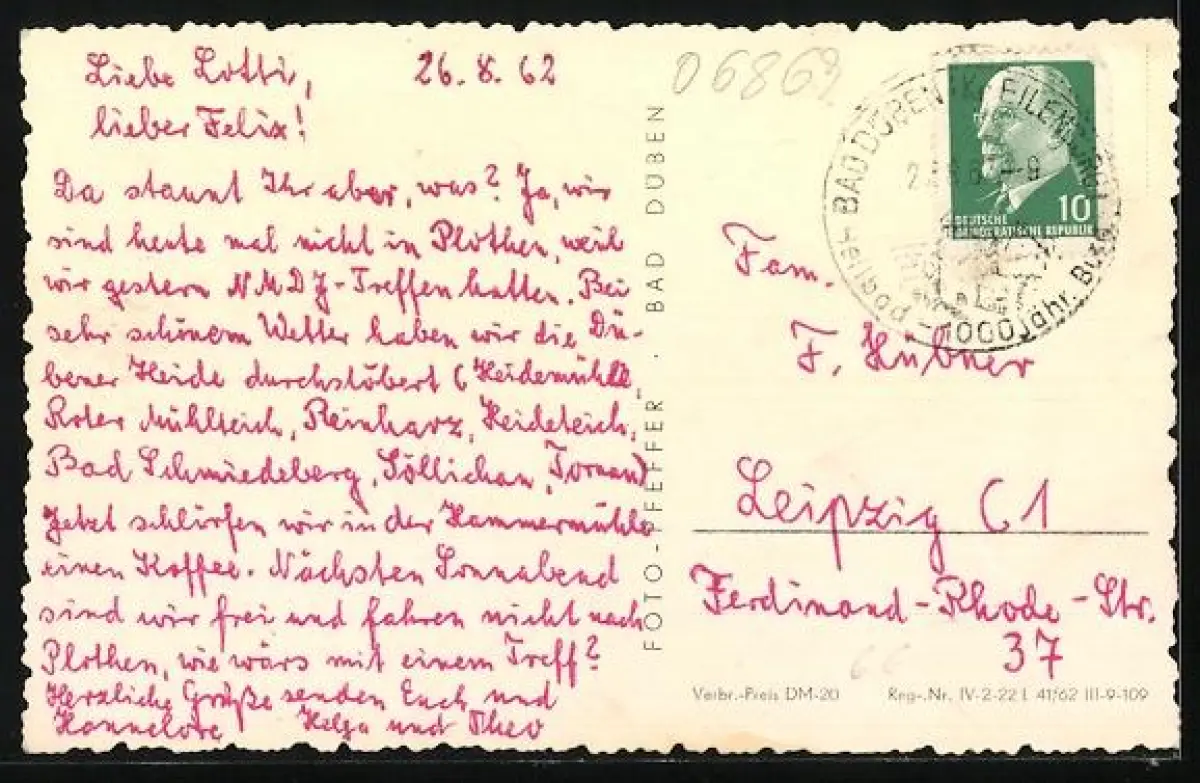 Liebe Lotti, 26.8.62
lieber Felix!
Da staunt Ihr aber, was? Ja, wir
sind heute mal nicht in Plothen, weil
wir gestern NMDJ-Treffen hatten. Bei
sehr schönem Wetter haben wir die Dü-
bener Heide durchstöbert (Heidemühle,
Roter Mühlteich, Reinharz, Heideteich,
Bad Schmiedeberg, Söllichau, Tornau)
Jetzt schlürfen wir in der Hammermühle
einen Kaffee. Nächsten Sonnabend
sind wir frei und fahren nicht nach
Plothen, wie wärs mit einem Treff?
Herzliche Grüße senden Euch und
Hannelore Helga und Theo
FOTO-PFEFFER · BAD DÜBEN
06869
BAD DÜBEN
1000 Jahr. Burg
10
DEUTSCHE
DEMOKRATISCHE REPUBLIK
Fam.
F. Hübner
Leipzig C1
Ferdinand-Rhode-Str.
37
Verbr.-Preis DM-20 Reg.-Nr. IV-2-22 L 41/62 III-9-109